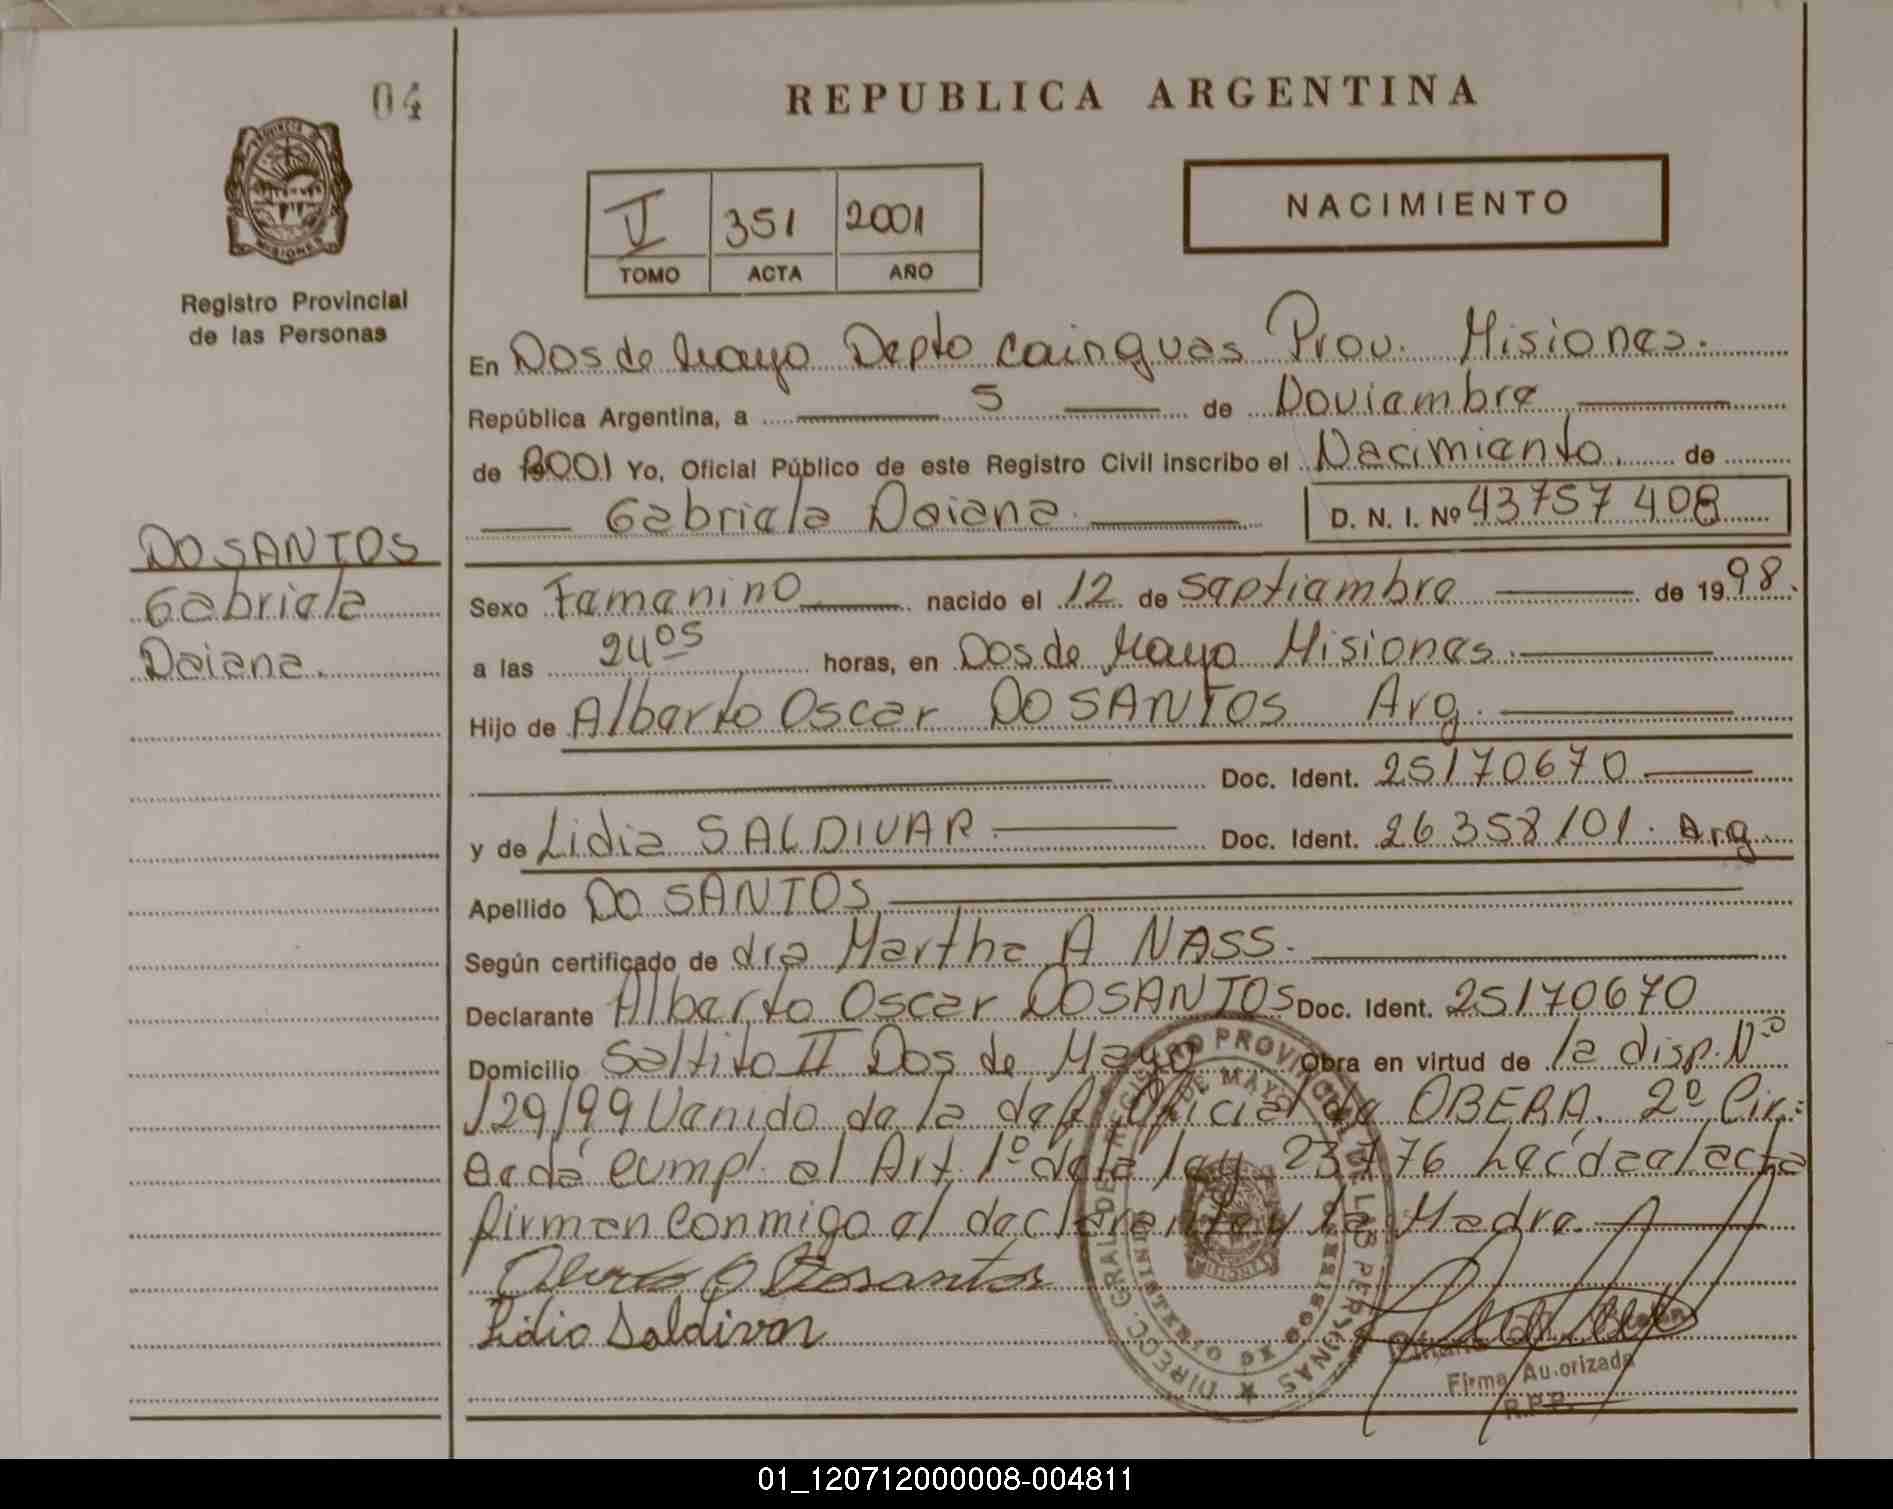 04
REPUBLICA ARGENTINA
PROVINCIA DE MISIONES
Registro Provincial
de las Personas
V 351 2001
TOMO ACTA AÑO
NACIMIENTO
En Dos de Mayo Depto Cainguas Prov. Misiones.
República Argentina, a 5 de Noviembre
de 2001 Yo, Oficial Público de este Registro Civil inscribo el Nacimiento de
Gabriela Daiana D. N. I. Nº 43757408
DO SANTOS
Gabriela
Daiana.
Sexo Femenino nacido el 12 de septiembre de 1998.
a las 24 05 horas, en Dos de Mayo Misiones.
Hijo de Alberto Oscar DO SANTOS Arg.
Doc. Ident. 25170670
y de Lidia SALDIVAR Doc. Ident. 26358101. Arg
Apellido DO SANTOS
Según certificado de dra Martha A NASS.
Declarante Alberto Oscar DO SANTOS Doc. Ident. 25170670
Domicilio Saltito II Dos de Mayo Obra en virtud de la disp. Nº
129/99 Venido de la def. Oficial de OBERA. 2º Cir.:
se dá cumpl. al Art. 1º de la ley 23776 Leída el acta
firman conmigo el declarante y la Madre.
Lidia Saldivar
DIRECC. GRAL. DE REGISTRO PROVINCIAL DE LAS PERSONAS
DOS DE MAYO
MISIONES
Firma Autorizada
R.P.P.
01_120712000008-004811